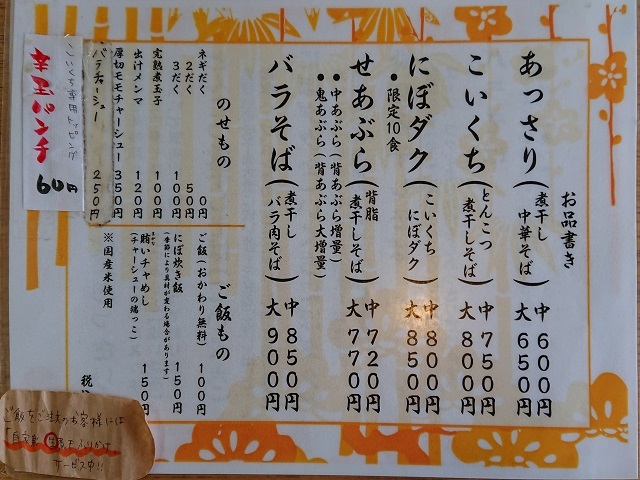 お品書き
あっさり(煮干し中華そば) 中 600円 大 650円
こいくち(とんこつ煮干しそば) 中 750円 大 800円
にぼダク(こいくちにぼダク) 中 800円 大 850円
●限定10食
せあぶら(背脂煮干しそば) 中 720円 大 770円
●中あぶら(背あぶら増量)
●鬼あぶら(背あぶら大増量)
バラそば(煮干しバラ肉そば) 中 850円 大 900円
のせもの
ネギだく 0円
2だく 50円
3だく 100円
完熟煮玉子 100円
出汁メンマ 120円
厚切モモチャーシュー 350円
バラチャーシュー 250円
ご飯もの
ご飯(おかわり無料) 100円
にぼ炊き飯 150円
(季節により具材が変わる場合があります)
賄いチャめし 150円
(チャーシューの端っこ)
※国産米使用
税
こいくち専用トッピング
辛玉パンチ
60円
ご飯をご注文のお客様には
ふりかけ
サービス中!!